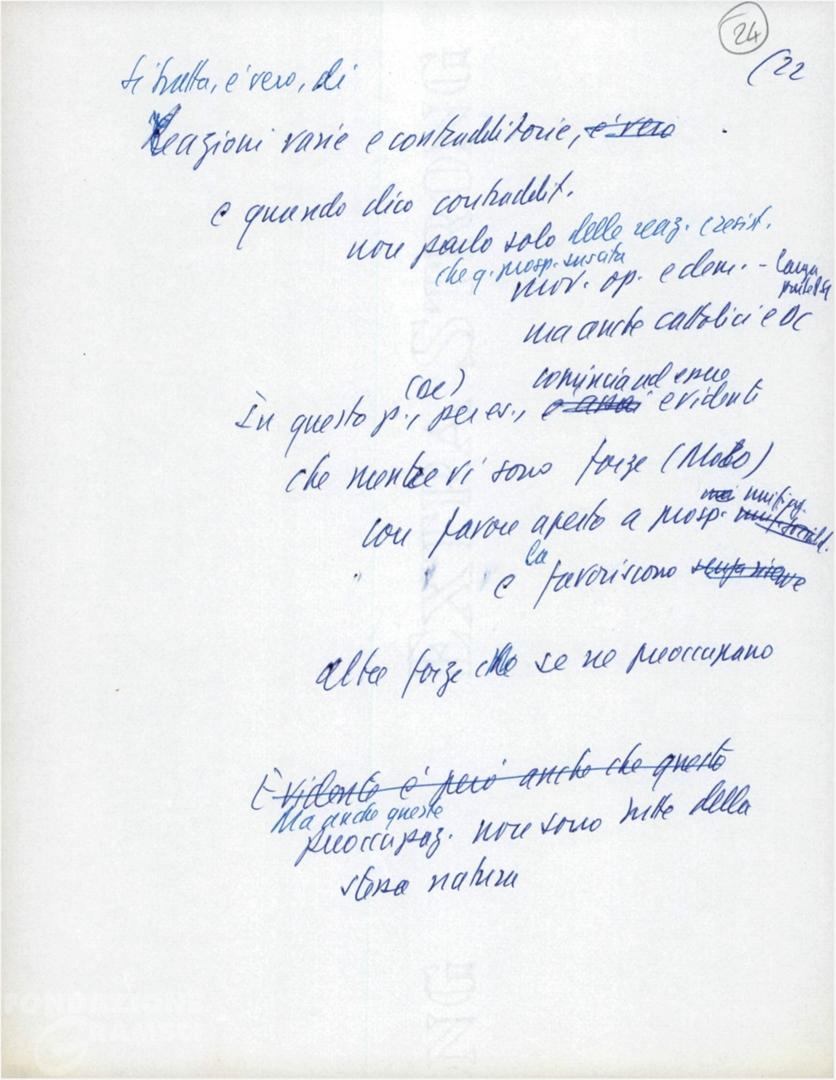 24
(22
si tratta, è vero, di
Reazioni varie e contraddittorie, è vero
e quando dico contraddit.
non parlo solo delle reaz. e resist.
che q. prosp. suscita
mov. op. e dem. - larga
parte Psi
ma anche cattolici e DC
(DC) cominciano ad essere
In questo p., per es., evidenti
che mentre vi sono forze (Moro)
con favore aperto a prosp.
la
e favoriscono
altre forze che se ne preoccupano
Evidente è però anche che questo
Ma anche queste
preoccupaz. non sono tutte della
stessa natura
FONDAZIONE
GRAMSCI